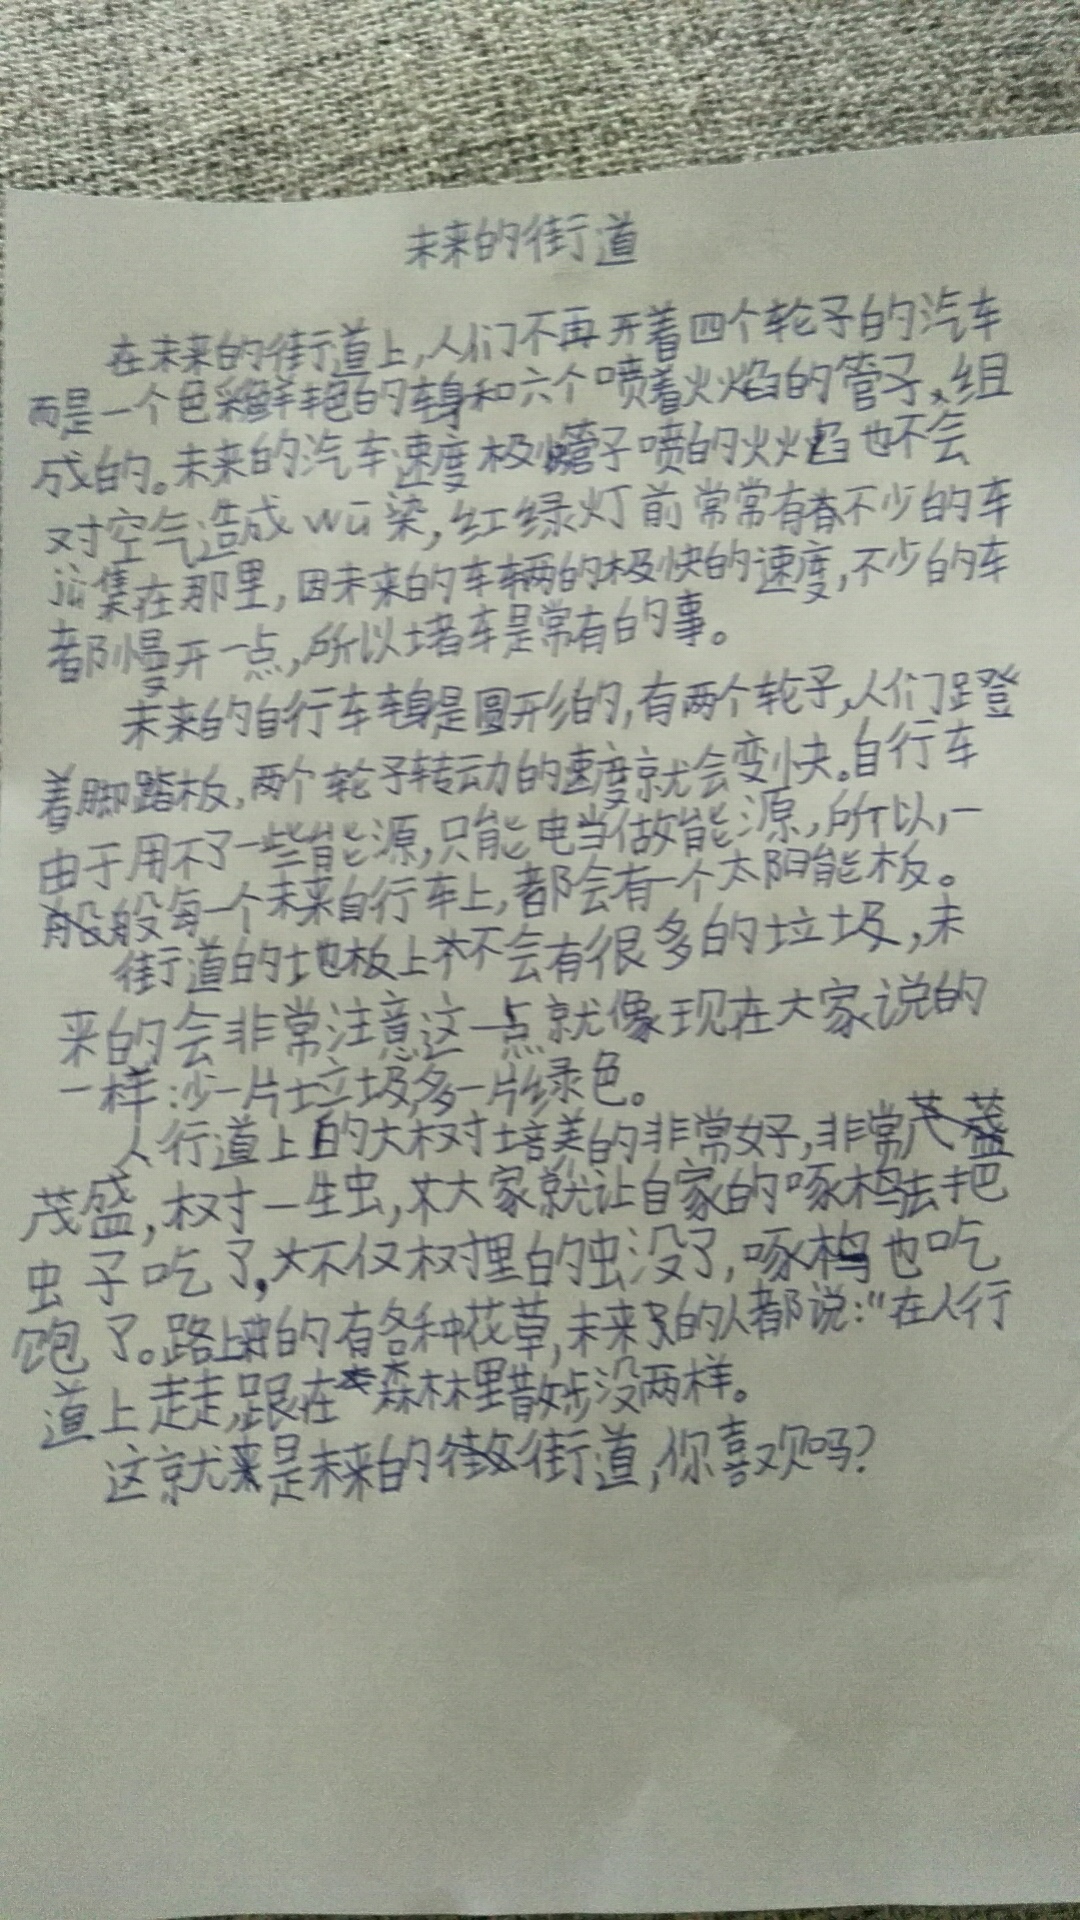 未来的街道
在未来的街道上,人们不再开着四个轮子的汽车
而是一个色采鲜艳的车身和六个喷着火焰的管子组
成的。未来的汽车速度极快管子喷的火焰也不会
对空气造成wū染,红绿灯前常常有不少的车
jù集在那里,因未来的车辆的极快的速度,不少的车
都慢开一点,所以堵车是常有的事。
未来的自行车车身是圆形的,有两个轮子,人们蹬
着脚踏板,两个轮子转动的速度就会变快。自行车
由于用不了一些能源,只能电当做能源,所以,一
般每一个未来自行车上,都会有一个太阳能板。
街道的地板上不会有很多的垃圾,未
来的会非常注意这一点就像现在大家说的
一样:少一片垃圾,多一片绿色。
人行道上的大树培美的非常好,非常
茂盛,树一生虫,大家就让自家的啄木鸟去把
虫子吃了,不仅树里的虫没了,啄木鸟也吃
饱了。路上的有各种花草,未来的人都说:“在人行
道上走走,跟在森林里散步没两样。
这就是未来的街道,你喜欢吗?